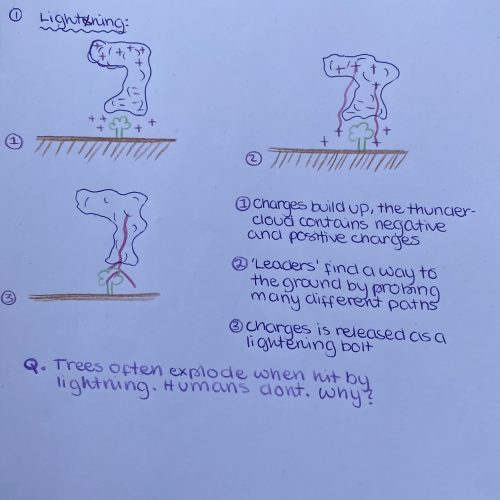 ① Lightning:
①
②
③
① charges build up, the thunder-
cloud contains negative
and positive charges
② 'Leaders' find a way to
the ground by probing
many different paths
③ charges is released as a
lightening bolt
Q. Trees often explode when hit by
lightning. Humans dont. Why?